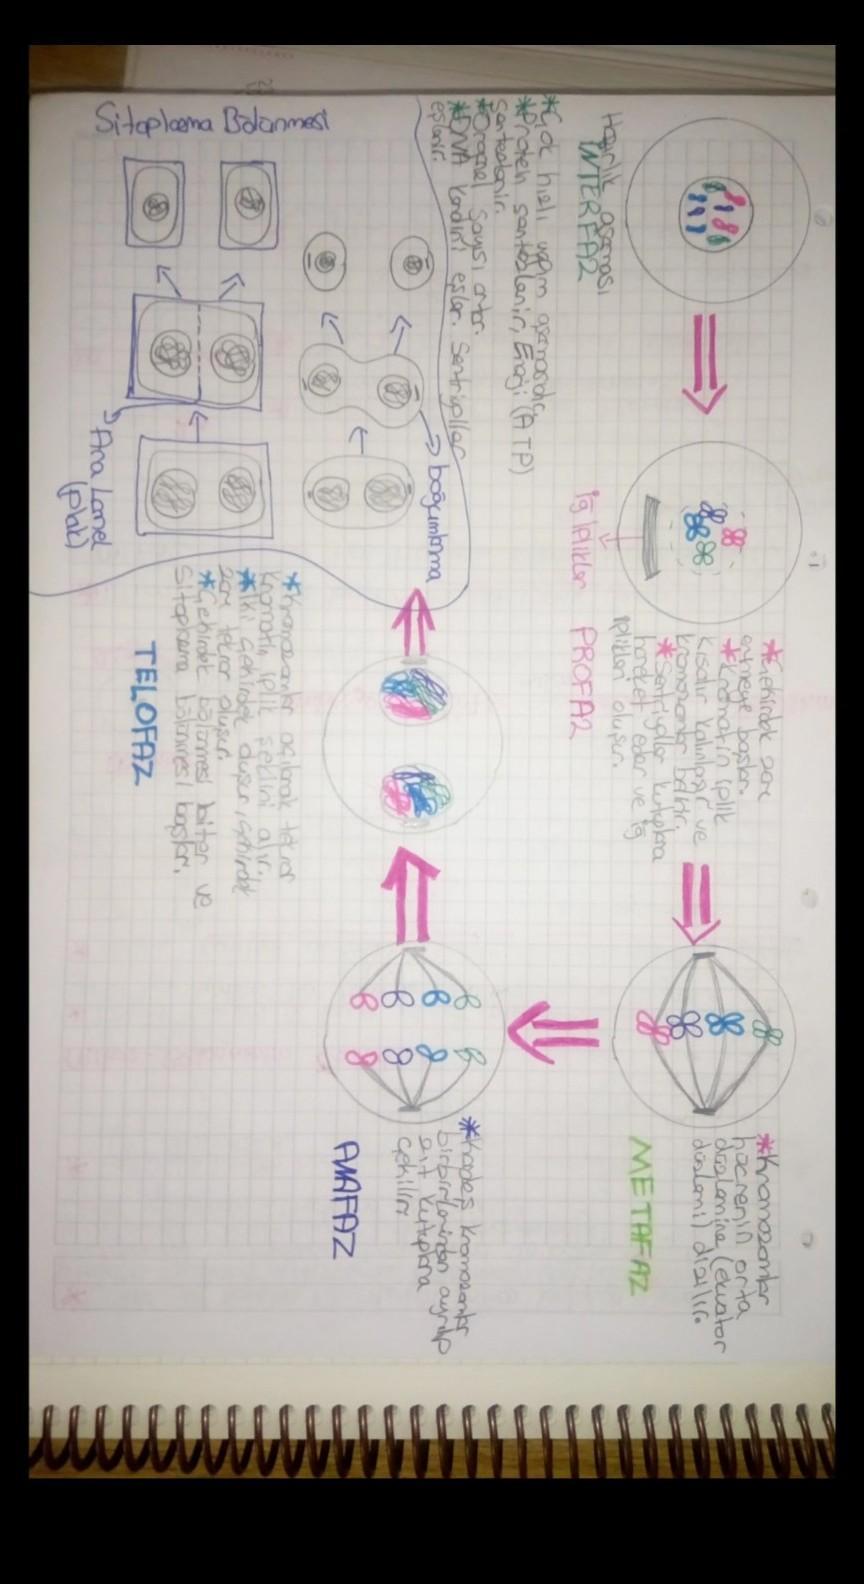 Hazırlık aşaması
İNTERFAZ
*Çok hızlı yapım aşamasıdır.
*Protein sentezlenir, Enerji (ATP)
sentezlenir.
*Organel sayısı artar.
*DNA kendini eşler. Sentriyoller
eşlenir.
İğ iplikler
PROFAZ
*Çekirdek zarı
erimeye başlar.
*Kromatin iplik
kısalır kalınlaşır ve
kromozomlar belirir.
*Sentriyoller kutuplara
hareket eder ve iğ
iplikleri oluşur.
METAFAZ
*Kromozomlar
hücrenin orta
düzlemine (ekvator
düzlemi) dizilir.
ANAFAZ
*Kardeş kromozomlar
birbirlerinden ayrılıp
zıt kutuplara
çekilir.
TELOFAZ
*Kromozomlar açılarak tekrar
kromatin iplik şeklini alır.
*İki çekirdek oluşur, çekirdek
zarı tekrar oluşur.
*Çekirdek bölünmesi biter ve
sitoplazma bölünmesi başlar.
Sitoplazma Bölünmesi
boğumlanma
Ara Lamel
(plak)